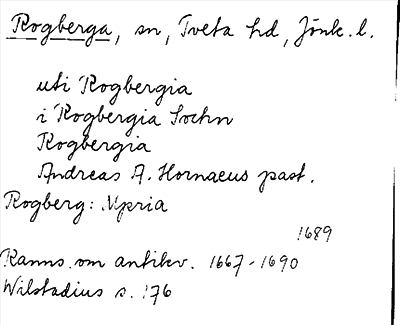 Rogberga, sn, Tveta hd, Jönk. l.
uti Rogbergia
i Rogbergia Sochn
Rogbergia
Andreas A. Hornaeus past.
Rogberg: Mpria
1689
Ranns. om antikv. 1667-1690
Wilstadius s. 176